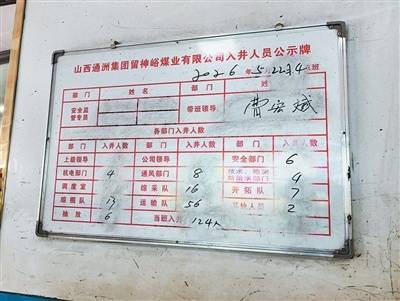 山西通洲集团留神峪煤业有限公司入井人员公示牌
2026年5.22 4班
部门 姓名 部门 姓名
安全监管专员 带班领导
各部门入井人数
部门 入井人数 部门 入井人数 部门 入井人数
上级领导 公司领导 安全部门 6
机电部门 4 通风部门 8 防治水部门 9
调度室 综采队 16 开拓队 7
综掘队 13 运输队 56 其他人员 2
抽放 6 当班入井 124人